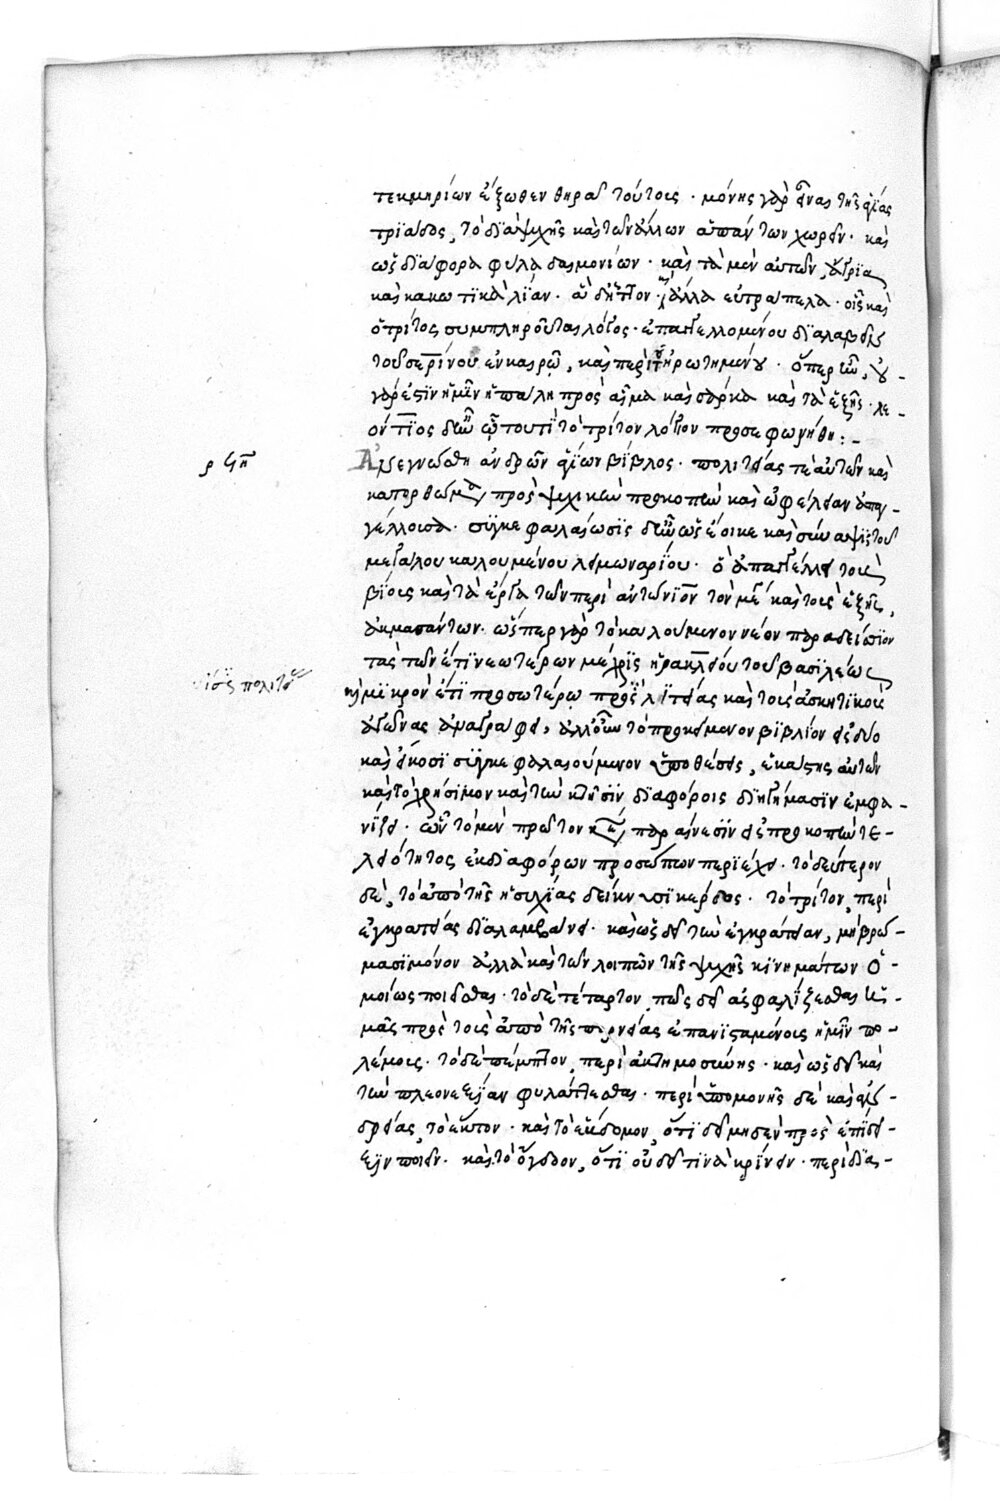 τεκμηρίων ἔξωθεν θηρᾶν τούτοις · μόνης γὰρ εἶναι τῆς ἁγίας
τριάδος, τὸ διὰ ψυχῆς καὶ τῶν ἄλλων ἁπάντων χωρεῖν · καὶ
ὡς διάφορα φῦλα δαιμονίων · καὶ τὰ μὲν αὐτῶν, ἄγρια
καὶ κακωτικὰ λίαν · ἃ δὲ ἧττον · καὶ ἄλλα εὐτράπελα · οἷς καὶ
ὁ τρίτος συμπληροῦται λόγος · ἐπαγγελλομένου διαλαβεῖν
τοῦ σερίνου ἐν καιρῷ, καὶ περὶ τοῦ ἠρωτημένου · ὅπερ ἦν, οὐ
γάρ ἐστιν ἡμῖν ἡ πάλη πρὸς αἷμα καὶ σάρκα καὶ τὰ ἑξῆς · λε-
όντιος δ' ἦν ᾧ τουτὶ τὸ τρίτον λόγιον προσεφωνήθη :-
ρϟη
Ἀνεγνώσθη ἀνδρῶν ἁγίων βίβλος · πολιτείας τε αὐτῶν καὶ
κατορθώματα πρὸς ψυχικὴν προκοπὴν καὶ ὠφέλειαν ἀπαγ-
γέλλουσα · συγκεφαλαίωσις δ' ἦν ὡς ἔοικε καὶ σύναψις τοῦ
μεγάλου καλουμένου λειμωναρίου · ὃ ἀπαγγέλλει τοὺς
βίους καὶ τὰ ἔργα τῶν περὶ ἀντώνιον τὸν μέγαν καὶ τοὺς ἑξῆς
ἀκμασάντων · ὥσπερ γὰρ τὸ καλούμενον νέον παραδείσιον
τὰς τῶν ἔτι νεωτέρων μέχρις ἡρακλείου τοῦ βασιλέως
ἢ μικρὸν ἔτι προσωτέρω πολιτείας καὶ τοὺς ἀσκητικοὺς
πολιτ
ἀγῶνας ἀναγράφει, ἀλλ' οὖν τὸ προκείμενον βιβλίον εἰς δύο
καὶ εἴκοσι συγκεφαλαιούμενον ὑποθέσεις, ἑκάστης αὐτῶν
καὶ τὸ χρήσιμον καὶ τὴν κτῆσιν διαφόροις διηγήμασιν ἐμφα-
νίζει · ὧν τὸ μὲν πρῶτον κεφ παραίνεσιν εἰς προκοπὴν τε-
λειότητος ἐκ διαφόρων προσώπων περιέχει · τὸ δεύτερον
δὲ, τὸ ἀπὸ τῆς ἡσυχίας δείκνυσι κέρδος · τὸ τρίτον, περὶ
ἐγκρατείας διαλαμβάνει · καὶ ὡς δεῖ τὴν ἐγκράτειαν, μὴ βρώ-
μασι μόνον ἀλλὰ καὶ τῶν λοιπῶν τῆς ψυχῆς κινημάτων ὁ-
μοίως ποιεῖσθαι · τὸ δὲ τέταρτον, πῶς δεῖ ἀσφαλίζεσθαι ἡ-
μᾶς πρὸς τοὺς ἀπὸ τῆς πορνείας ἐπανισταμένους ἡμῖν πο-
λέμους · τὸ δὲ πέμπτον, περὶ ἀκτημοσύνης · καὶ ὡς δεῖ καὶ
τὴν πλεονεξίαν φυλάττεσθαι · περὶ ὑπομονῆς δὲ καὶ ἀν-
δρείας, τὸ ἕκτον · καὶ τὸ ἕβδομον, ὅτι δεῖ μηδὲν πρὸς ἐπίδει-
ξιν ποιεῖν · καὶ τὸ ὄγδοον, ὅτι οὐ δεῖ τινὰ κρίνειν · περὶ δια-